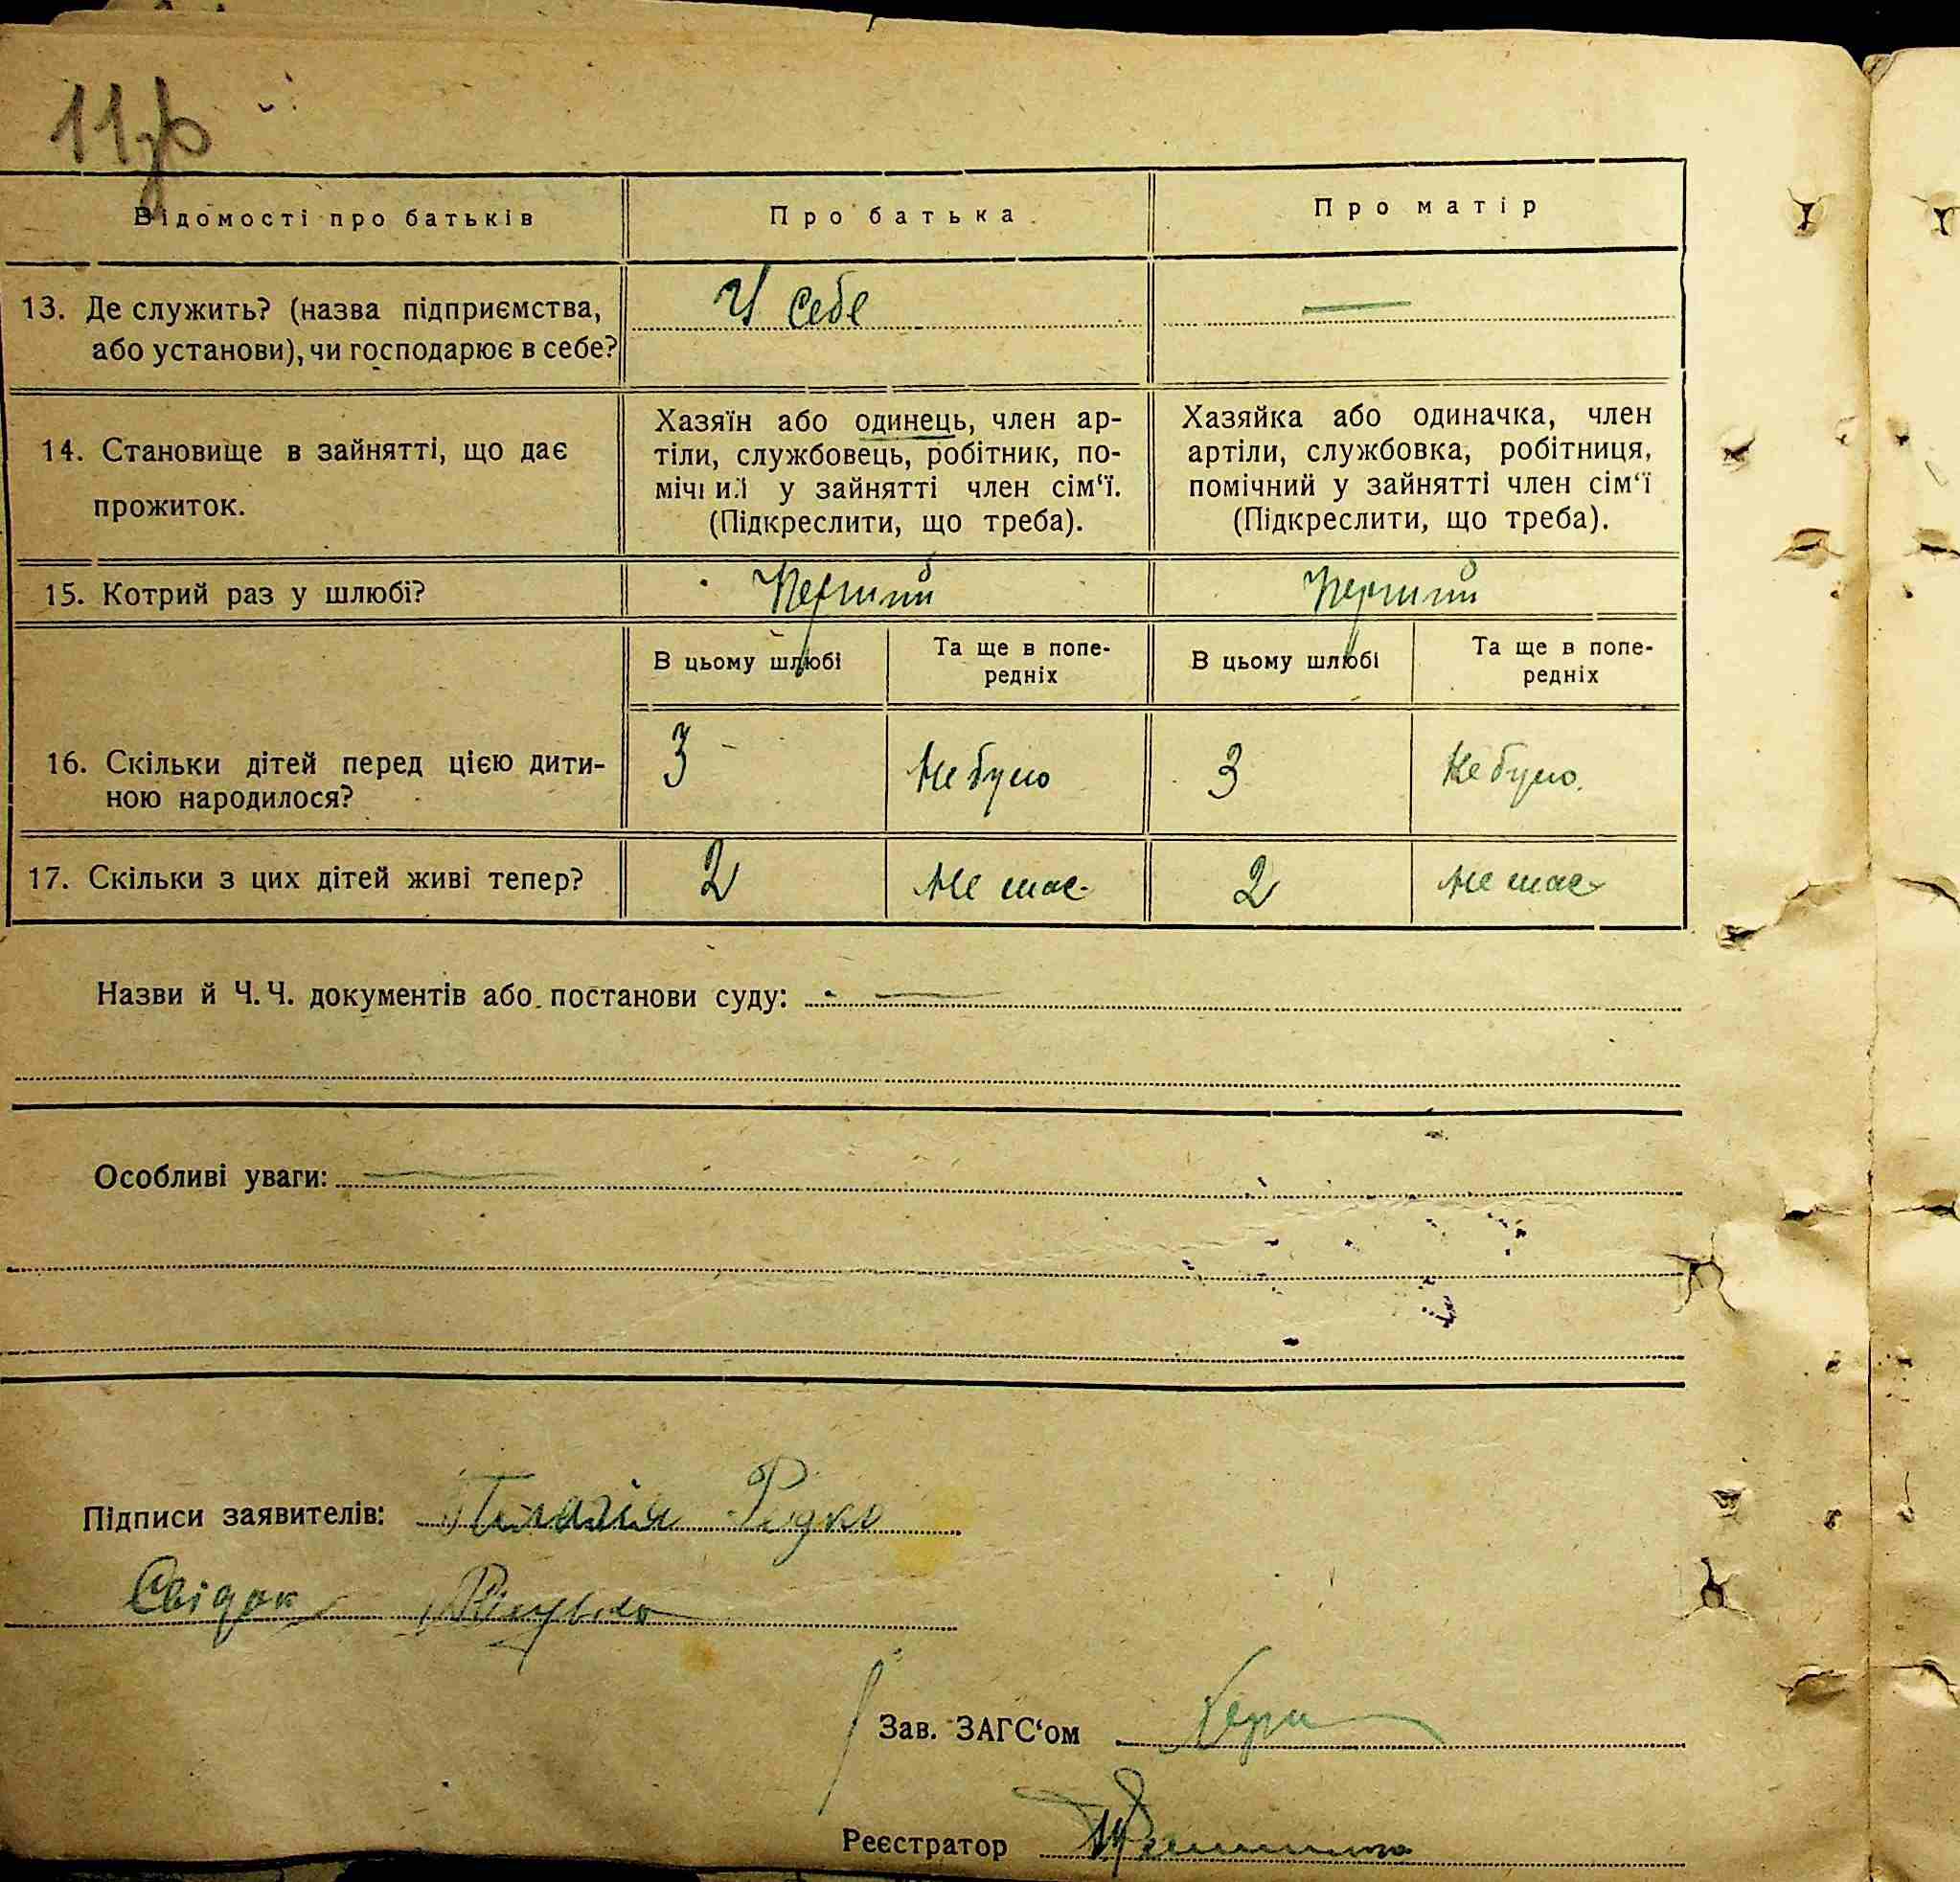 11зв
Відомості про батьків Про батька Про матір
13. Де служить? (назва підприємства, У себе —
або установи), чи господарює в себе?
Хазяїн або одинець, член ар- Хазяйка або одиначка, член
14. Становище в зайнятті, що дає тіли, службовець, робітник, по- артіли, службовка, робітниця,
прожиток. у зайнятті член сім‘ї. помічний у зайнятті член сім‘ї
(Підкреслити, що треба). (Підкреслити, що треба).
15. Котрий раз у шлюбі? Перший Перший
В цьому шлюбі Та ще в попе- В цьому шлюбі Та ще в попе-
редніх редніх
16. Скільки дітей перед цією дити- 3 Не було 3 Не було.
ною народилося?
17. Скільки з цих дітей живі тепер? 2 Не має 2 Не має
Назви й Ч.Ч. документів або постанови суду: —
Особливі уваги: —
Підписи заявителів: Редко
Свідок
Зав. ЗАГС‘ом
Реєстратор